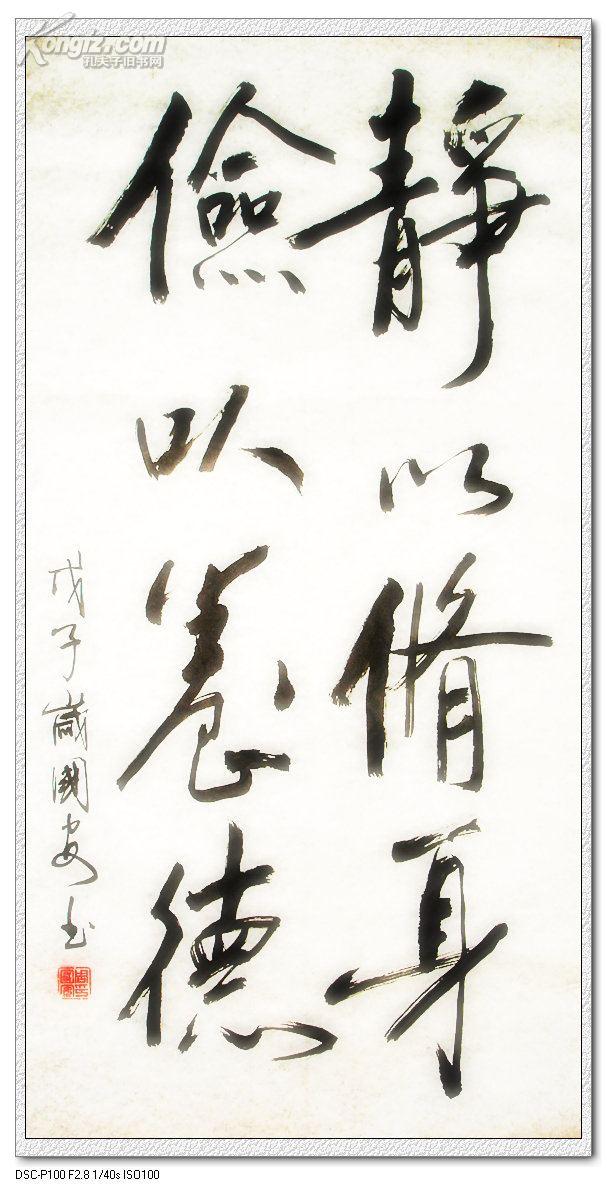 Kongfz.com
孔夫子旧书网
靜以脩身
儉以養德
戊子歲國安书
DSC-P100 F2.8 1/40s ISO100